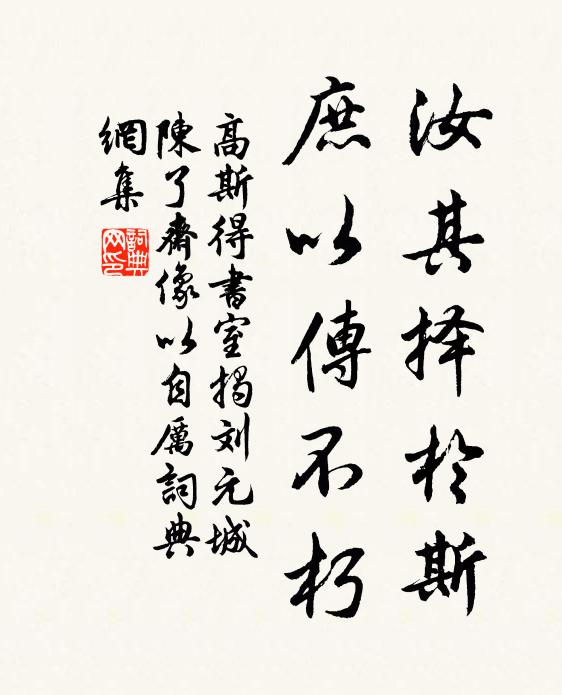 汝其择於斯
庶以傳不朽
高斯得書室揭刘元城
陳了齋像以自厲詞典
網集
詞典
网印